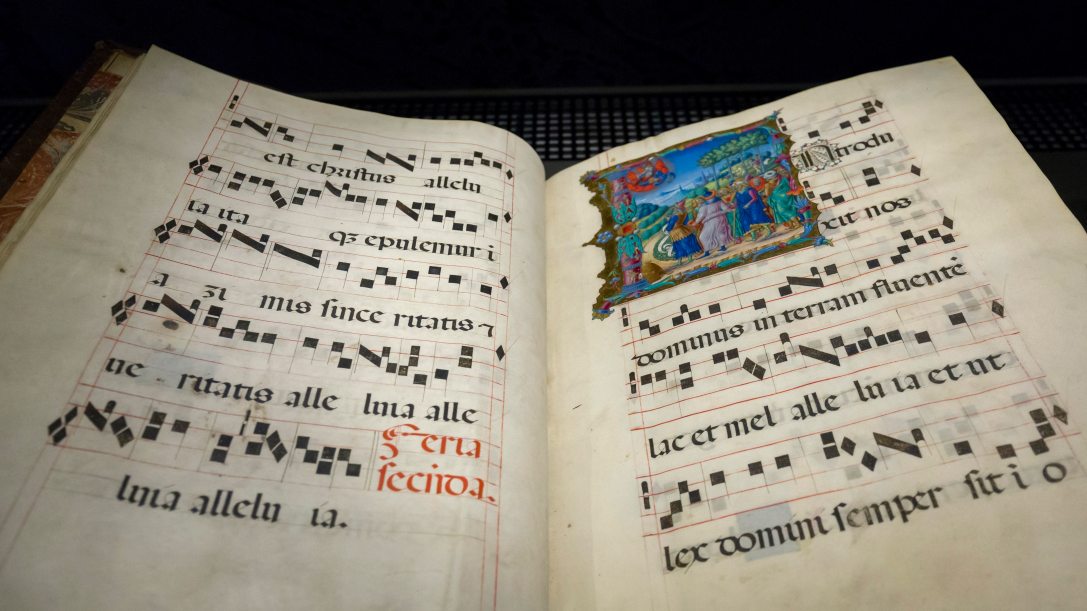 est christus allelu
ia ita qз epulemur i
a zi mis since ritatis ⁊
ue ritatis alle luia alle
luia allelu ia.
Feria
secūda.
Introdu
xit nos
dominus in terram fluentē
lac et mel alle lu ia et ut
lex domini semper sit i o